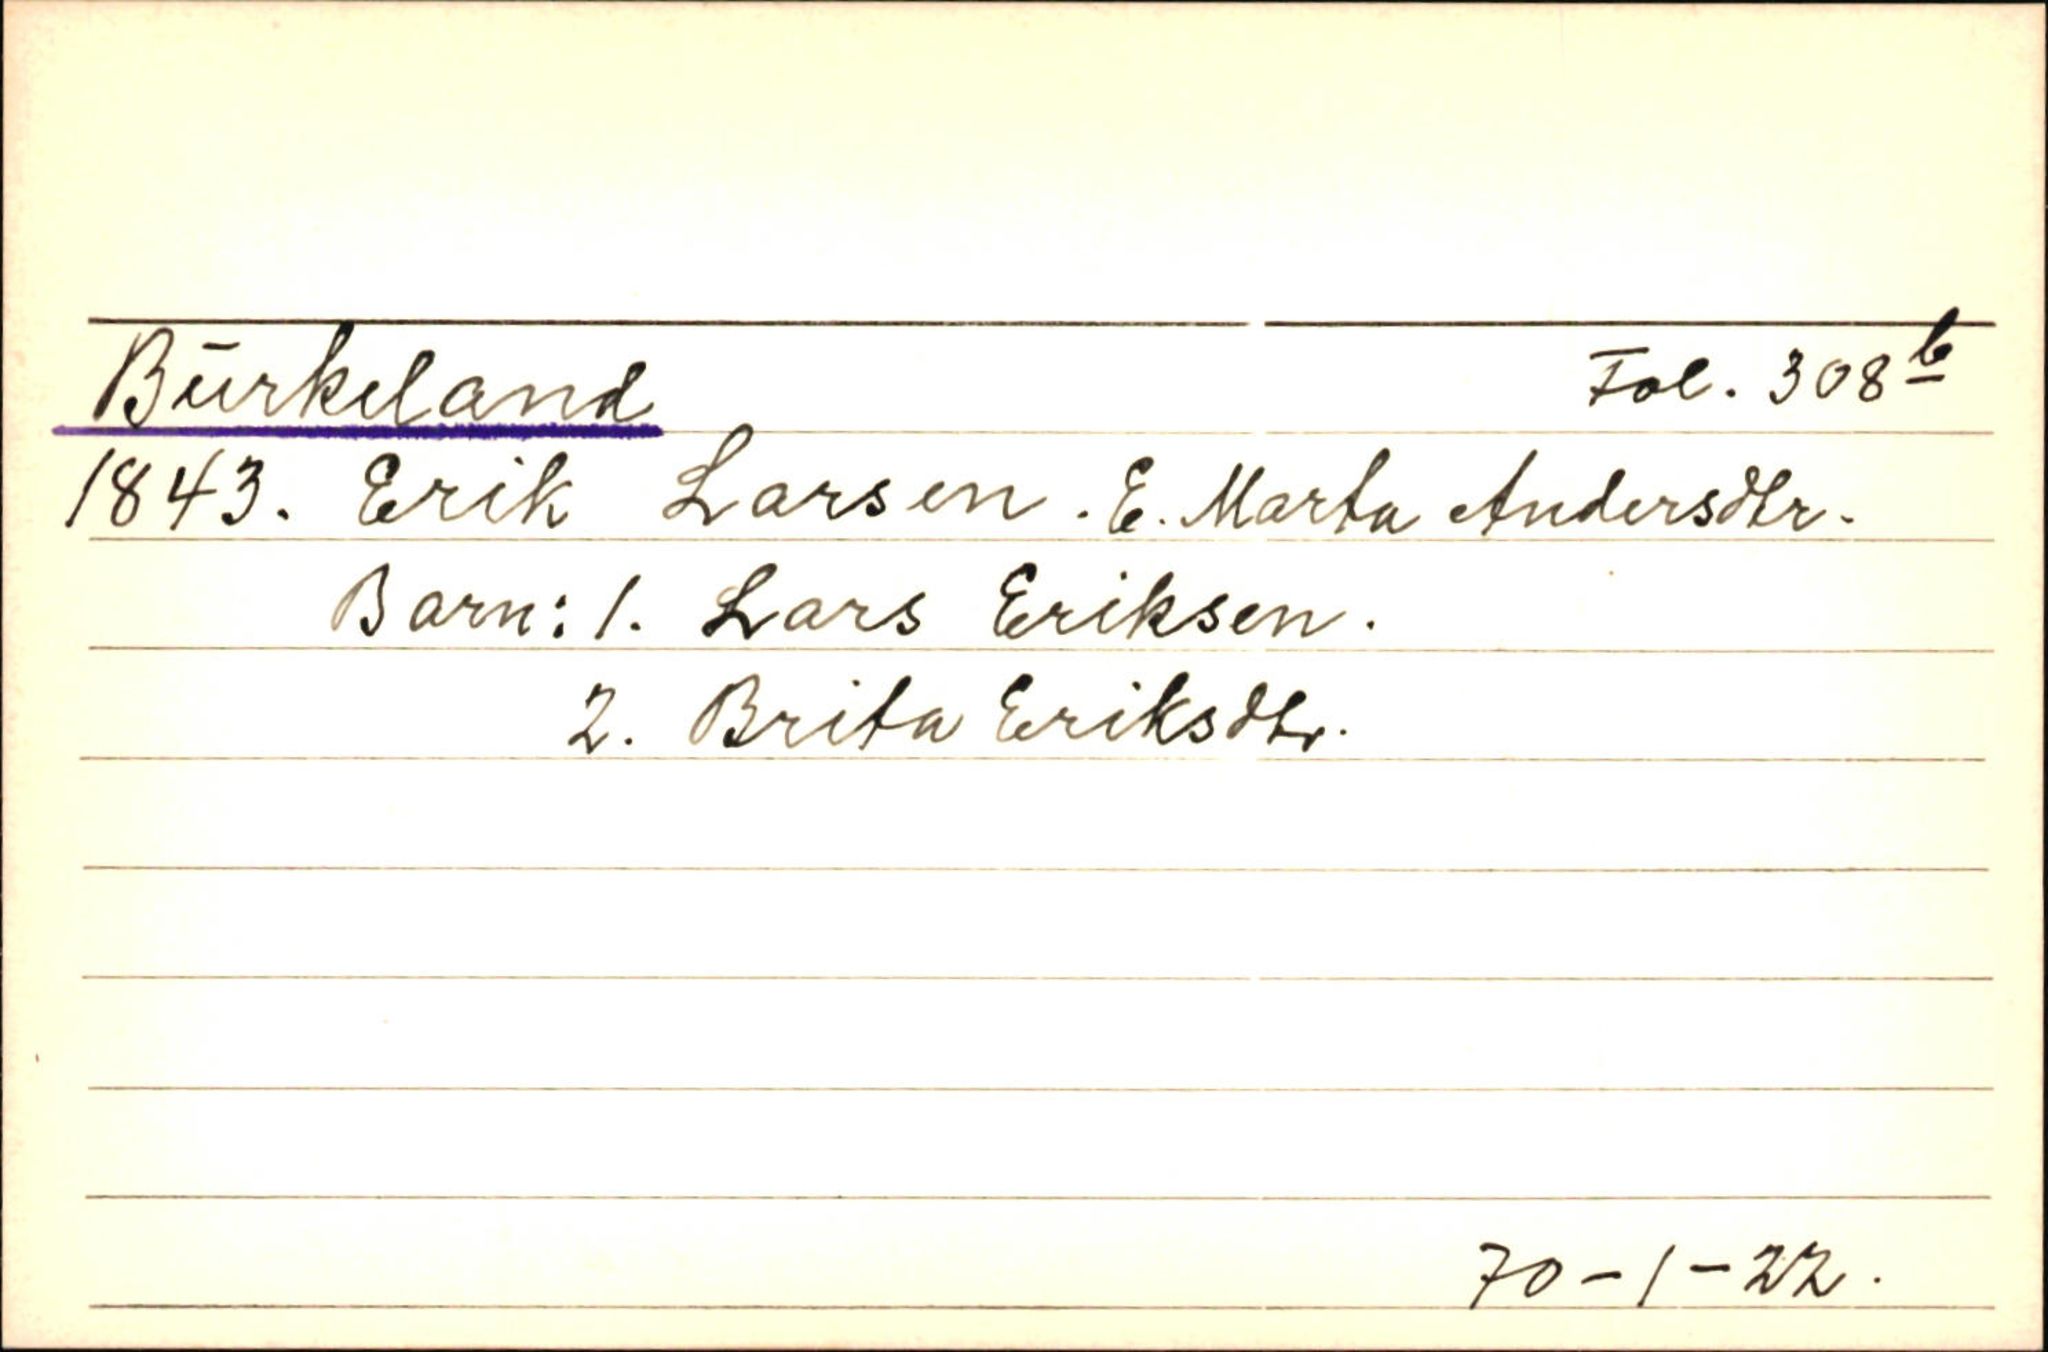 Būrkeland Fol. 308 b
1843. Erik Larsen. E. Marta Andersdtr.
Barn: 1. Lars Eriksen.
2. Brita Eriksdtr.
70-1-22.